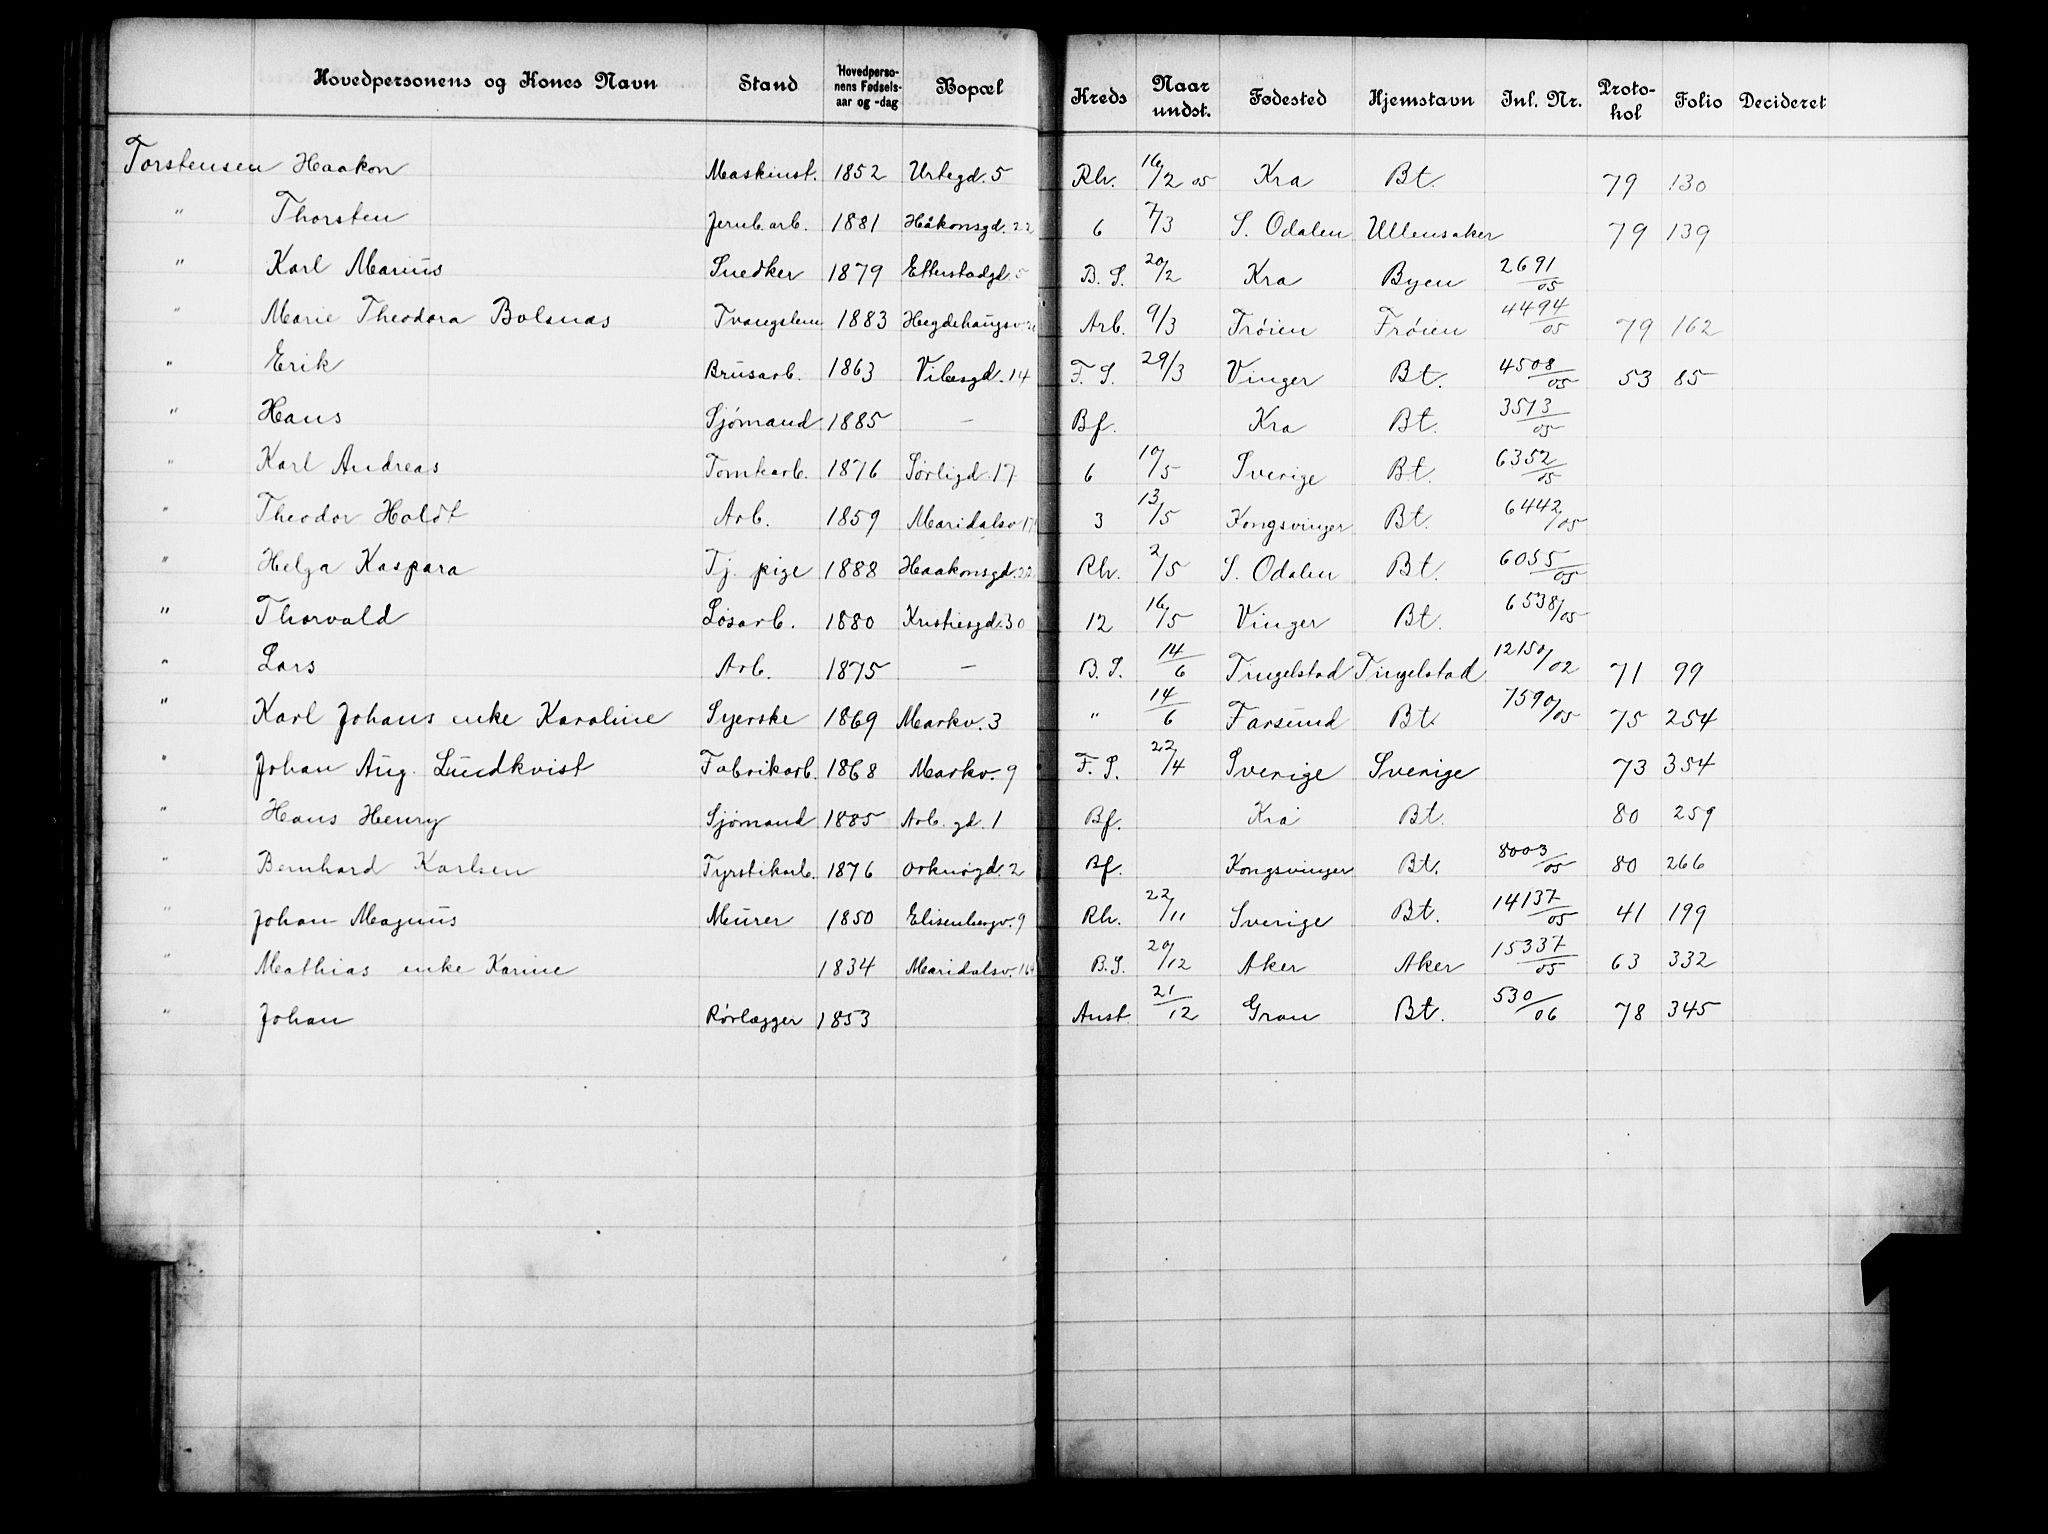 Hovedpersonens og Kones Navn Stand Hovedperso-nens Fødsels-aar og -dag Bopæl Kreds Naar undst. Fødested Hjemstavn Inl. Nr. Proto-kol Folio Decideret
Torstensen Haakon Maskinst. 1852 Urtegd. 5 Rh. 16/2 05 Kra Bt. 79 130
" Thorsten Jernb.arb. 1881 Håkonsgd. 22 6 7/3 S. Odalen Ullensaker 79 139
" Karl Marius Snedker 1879 Etterstadgd. 5 B. S. 20/2 Kra Byen 2691/05
" Marie Theodora Bolsnas 1883 Hegdehaugsv. Arb. 9/3 Trøien Trøien 4494/05 79 162
" Erik Brusarb. 1863 Vibesgd. 14 F. S. 29/3 Vinger Bt. 4508/05 53 85
" Hans Sjømand 1885 — Bf. Kra Bt. 3513/05
" Karl Andreas Tomtearb. 1876 Sørligd. 17 6 10/5 Sverige Bt. 6352/05
" Theodor Holdt Arb. 1859 Maridalsv. 3 13/5 Kongsvinger Bt. 6442/05
" Helga Kaspara Tj. pige 1888 Haakonsgd. 22 Rh. 2/5 S. Odalen Bt. 6055/05
" Thorvald Løsarb. 1880 Kristiesgd. 30 12 16/5 Vinger Bt. 6538/05
" Lars Arb. 1875 — B. S. 14/6 Tingelstad Tingelstad 12150/02 71 99
" Karl Johans enke Karoline Syerske 1869 Markv. 3 " 14/6 Farsund Bt. 7590/05 75 254
" Johan Aug. Lundkvist Fabrikarb. 1868 Markv. 9 F. S. 22/4 Sverige Sverige 73 354
" Hans Henry Sjømand 1885 Arb. gd. 1 Bf. Kra Bt. 80 259
" Bernhard Karlsen Fyrstikarb. 1876 Orknøgd. 2 Bf. Kongsvinger Bt. 8003/05 80 266
" Johan Magnus Murer 1850 Elisenbergv. 9 Rh. 22/11 Sverige Bt. 14137/05 41 199
" Mathias enke Karine 1834 Maridalsv. 164 B.S. 20/12 Aker Aker 15337/05 63 332
" Johan Rørlægger 1853 Anst. 21/12 Gran Bt. 530/06 78 345